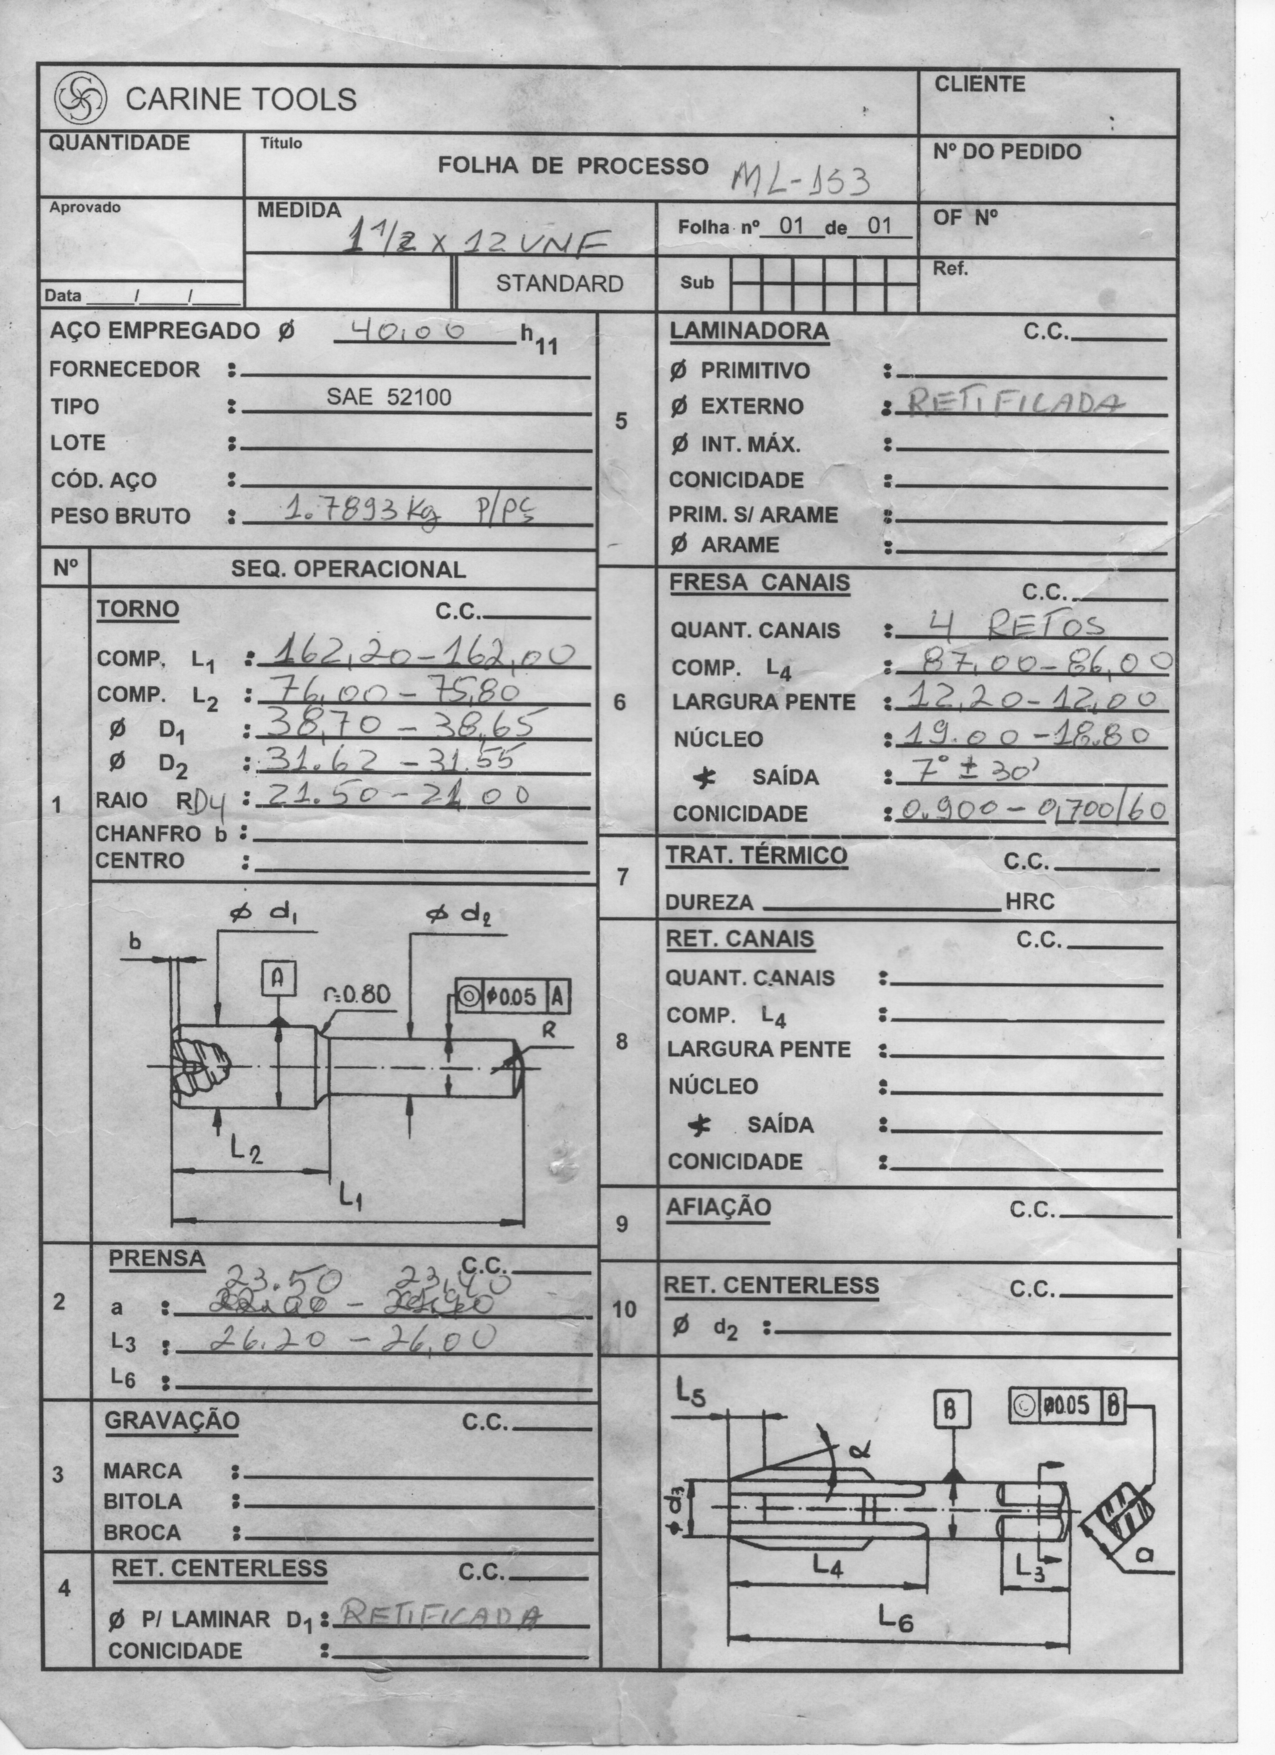 CARINE TOOLS
CLIENTE
QUANTIDADE
Título
FOLHA DE PROCESSO ML-153
Nº DO PEDIDO
Aprovado
MEDIDA
1 1/2 x 12 UNF
Folha nº 01 de 01
OF Nº
Data / /
STANDARD
Sub
Ref.
AÇO EMPREGADO Ø 40,00 h11
FORNECEDOR :
TIPO : SAE 52100
LOTE :
CÓD. AÇO :
PESO BRUTO : 1.7893 Kg P/PÇ
Nº SEQ. OPERACIONAL
1
TORNO C.C.
COMP. L1 : 162,20-162,00
COMP. L2 : 76,00-75,80
Ø D1 : 38,70 - 38,65
Ø D2 : 31.62 - 31.55
RAIO RD4 : 21.50-21,00
CHANFRO b :
CENTRO :
ø d1
ø d2
b
A
r=0.80
◎ ø0.05 A
R
L2
L1
2
PRENSA C.C.
23.50 23,40
a :
L3 : 26.20 - 26,00
L6 :
3
GRAVAÇÃO C.C.
MARCA :
BITOLA :
BROCA :
4
RET. CENTERLESS C.C.
Ø P/ LAMINAR D1 : RETIFICADA
CONICIDADE :
5
LAMINADORA C.C.
Ø PRIMITIVO :
Ø EXTERNO : RETIFICADA
Ø INT. MÁX. :
CONICIDADE :
PRIM. S/ ARAME :
Ø ARAME :
6
FRESA CANAIS C.C.
QUANT. CANAIS : 4 RETOS
COMP. L4 : 87,00-86,00
LARGURA PENTE : 12,20-12,00
NÚCLEO : 19.00-18.80
SAÍDA : 7° ± 30'
CONICIDADE : 0.900 - 0,700/60
7
TRAT. TÉRMICO C.C.
DUREZA HRC
8
RET. CANAIS C.C.
QUANT. CANAIS :
COMP. L4 :
LARGURA PENTE :
NÚCLEO :
SAÍDA :
CONICIDADE :
9
AFIAÇÃO C.C.
10
RET. CENTERLESS C.C.
Ø d2 :
L5
B
◎ ø0.05 B
α
ø d3
L4
L3
a
L6